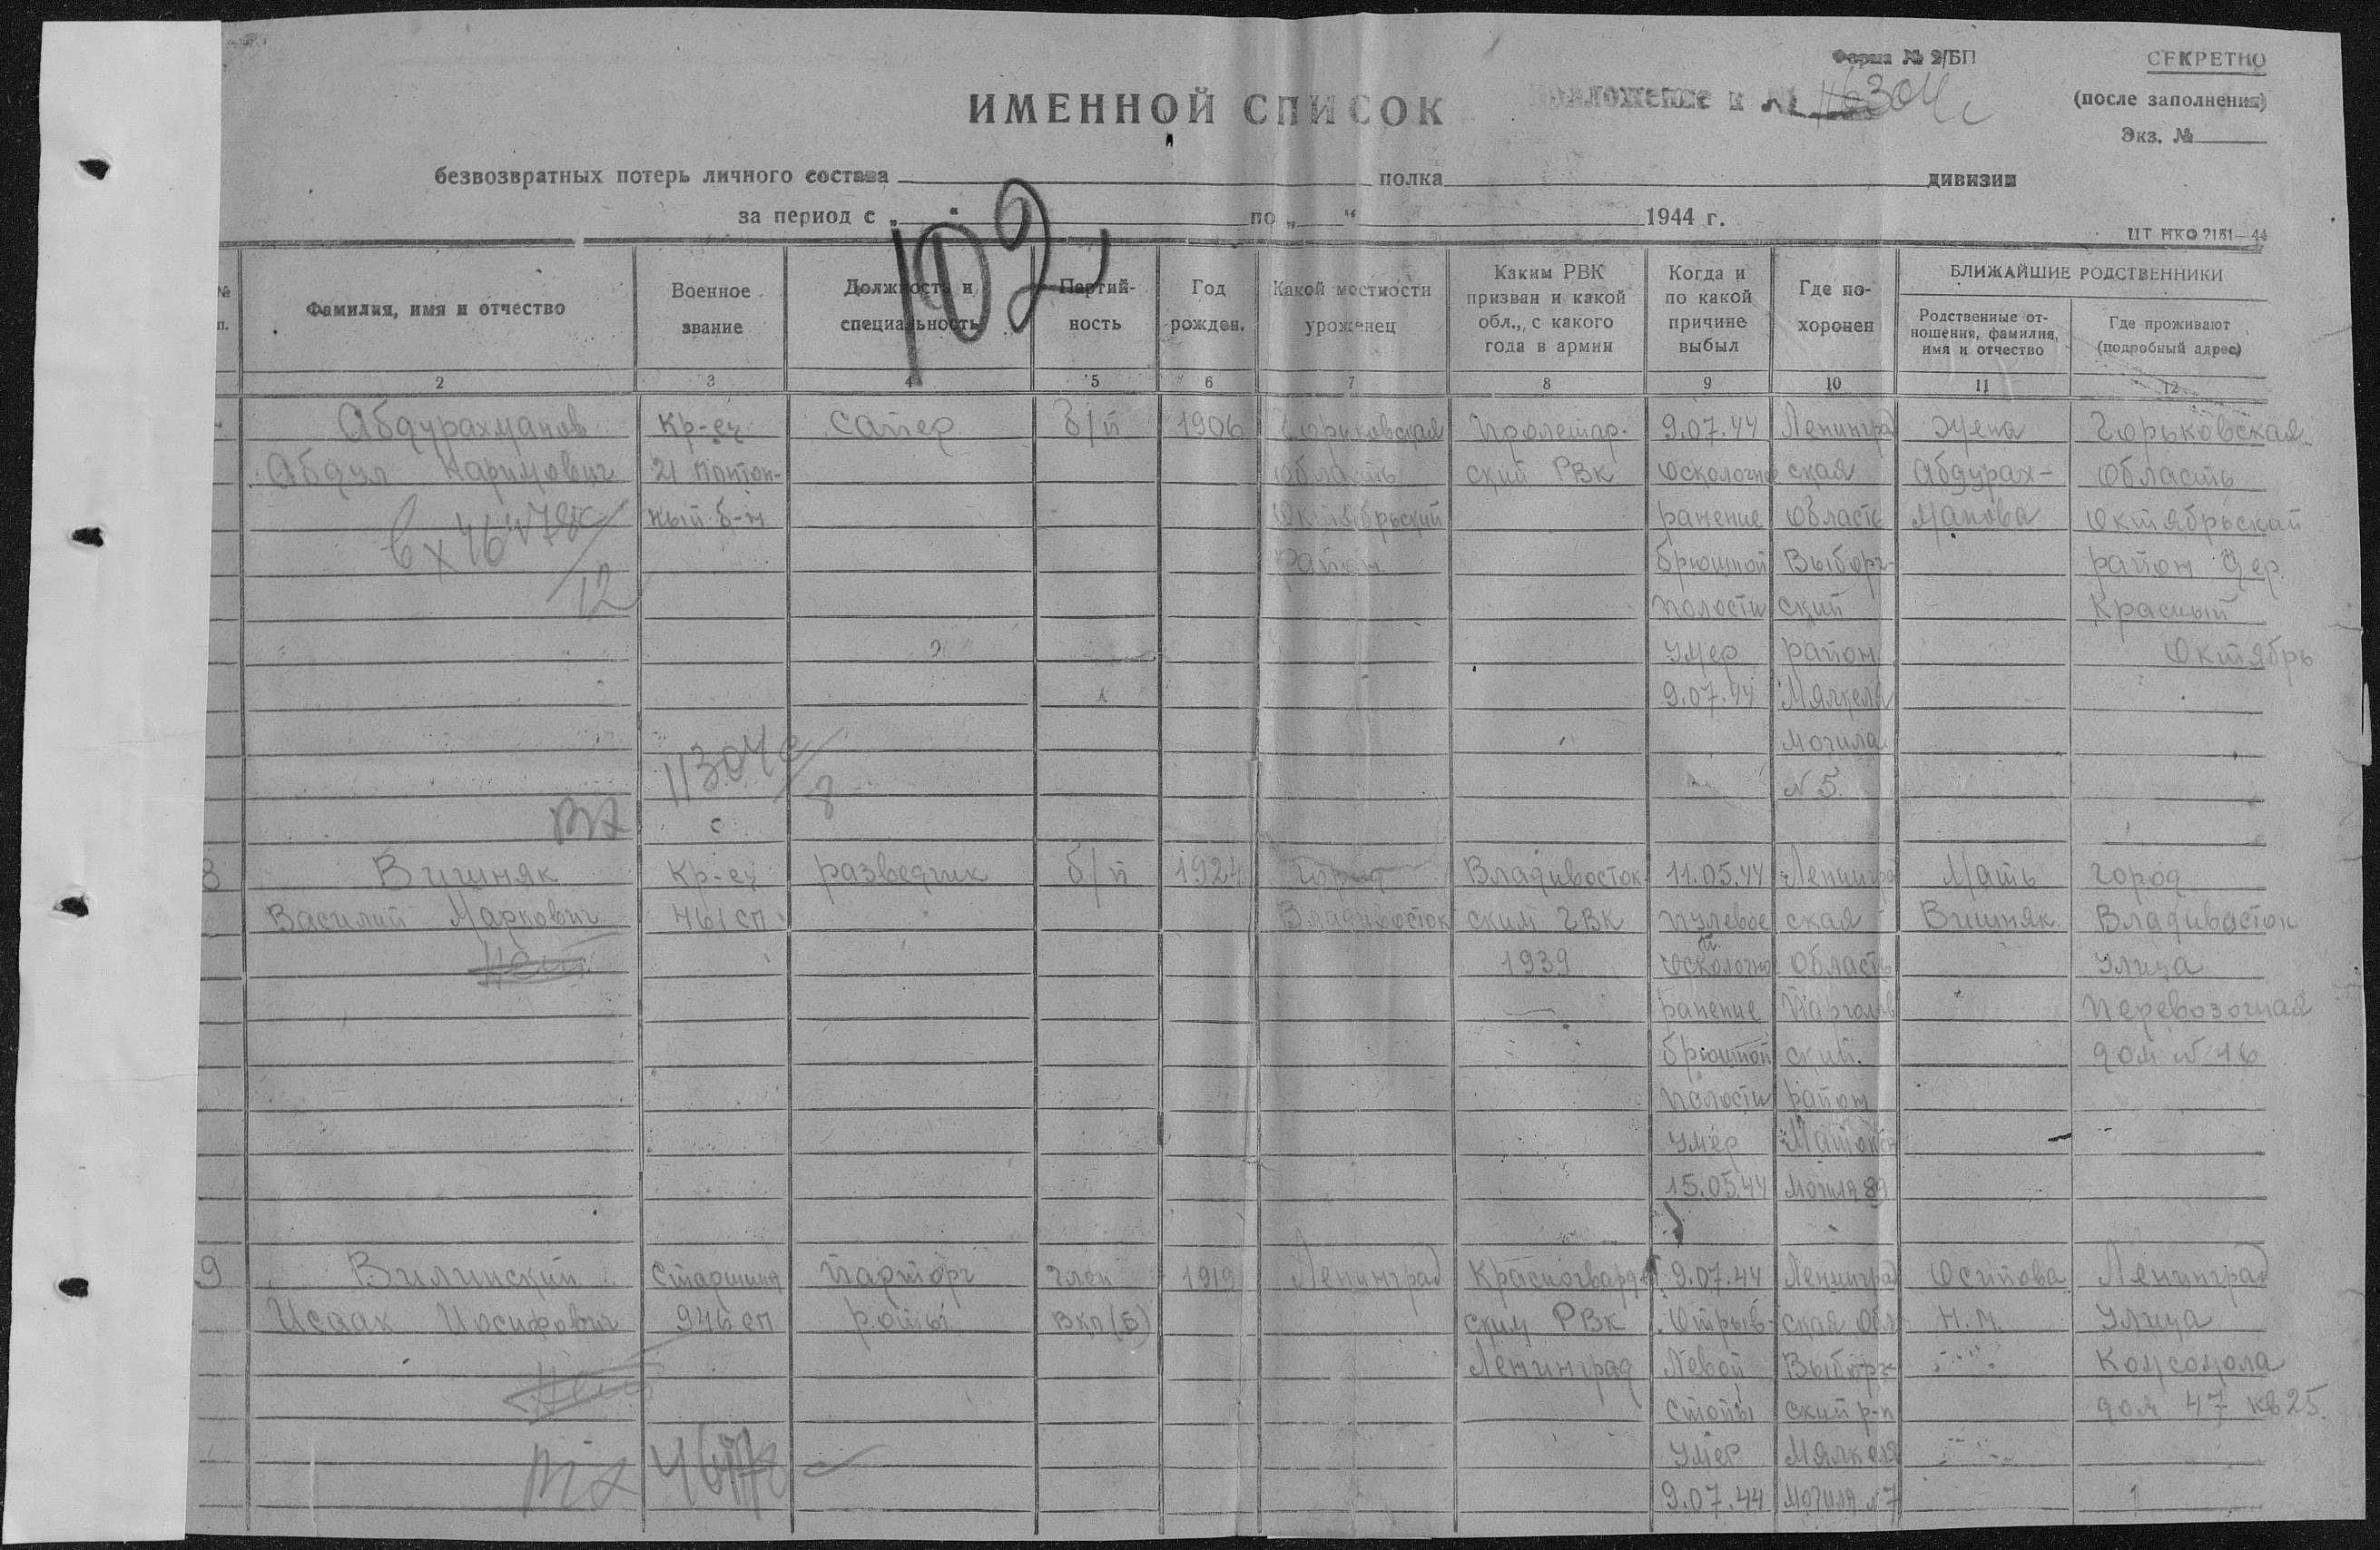 Форма № 2/БП
СЕКРЕТНО
ИМЕННОЙ СПИСОК
Приложение к №
(после заполнения)
Экз. №
безвозвратных потерь личного состава полка дивизии
за период с „ “ по „ “ 1944 г.
102
ЦТ НКО 2151—44
№ п.
Фамилия, имя и отчество
Военное звание
Должность и специальность
Партий-ность
Год рожден.
Какой местности уроженец
Каким РВК призван и какой обл., с какого года в армии
Когда и по какой причине выбыл
Где по-хоронен
БЛИЖАЙШИЕ РОДСТВЕННИКИ
Родственные от-ношения, фамилия, имя и отчество
Где проживают (подробный адрес)
2 3 4 5 6 7 8 9 10 11 12
Абдурахманов Кр-ец сапер б/п 1906 Горьковская Пролетар- 9.07.44 Ленинград Жена Горьковская
Абдул Каримович 21 понтон- область ский РВК Осколочное ская Абдурах- область
ный б-н Октябрьский ранение область манова Октябрьский
район брюшной Выборг- район дер.
полости ский Красный
умер район Октябрь
9.07.44 Мялкеля
могила
N 5
11304с/8
8 Вишняк Кр-ец разведчик б/п 1924 город Владивосток- 11.05.44 Ленинград Мать город
Василий Маркович 461 сп Владивосток ским ГВК пулевое ская Вишняк Владивосток
1939 и осколочное область улица
ранение Парголов Перевозочная
брюшной ский дом N 16
полости район
умер
15.05.44 могила 89
9 Вилинский Старшина парторг член 1919 Ленинград Красногвардей 9.07.44 Ленинград Осипова Ленинград
Исаак Иосифович 946 сп роты ВКП(б) ским РВК Отрыв ская обл Н.М. улица
Ленинград левой Выборг- Комсомола
стопы ский р-н дом 47 кв 25.
умер Мялкеля
9.07.44 могила N 7